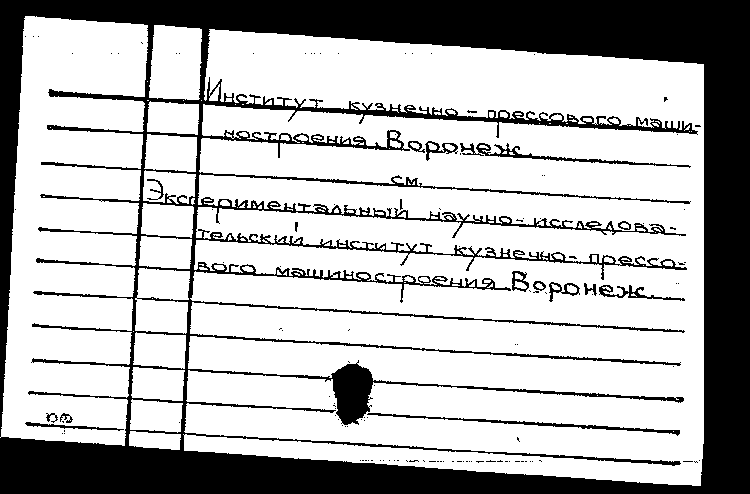 Институт кузнечно-прессового маши-
ностроения. Воронеж.
см.
Экспериментальный научно-исследова-
тельский институт кузнечно-прессо-
вого машиностроения. Воронеж.